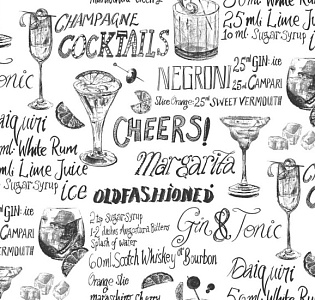 CHAMPAGNE
COCKTAILS
25ml Lime Juice
10 ml Sugar syrup ice
NEGRONI
25ml GIN ice
25ml CAMPARI
Slice Orange 25ml SWEET VERMOUTH
Tonic
CHEERS!
Daiquiri
White Rum
ml Lime Juice
Sugar syrup ice
Margarita
OLDFASHIONED
GIN ice
CAMPARI
VERMOUTH
2 tsp Sugar Syrup
1-2 dashes Angostura Bitters
Splash of water
60ml Scotch Whiskey or Bourbon
Orange Slice
maraschino cherry
Gin & Tonic
Daiquiri
50ml White Rum
25ml Lime Juice